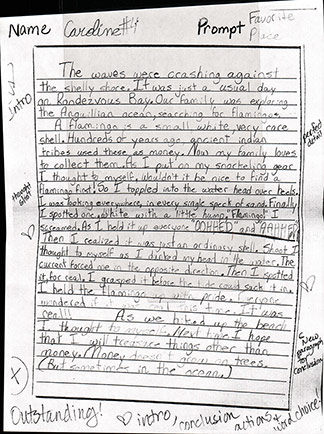 Name Caroline #4 Prompt Favorite Place
The waves were crashing against
the shelly shore. It was just a usual day
on Rondezvous Bay. Our family was exploring
the Anguillian ocean, searching for flamingos.
A flamingo is a small white very rare
shell. Hundreds of years ago ancient indian
tribes used these as money. Now my family loves
to collect them. As I put on my snorkeling gear
I thought to myself, wouldn't it be nice to find a
flamingo first. So I toppled into the water head over heels.
I was looking everywhere, in every single speck of sand. Finally
I spotted one, white with a little hump. Flamingo! I
screamed. As I held it up everyone "OOHHED" and "AAHHED"
Then I realized it was just an ordinary shell. Shoot I
thought to myself as I dunked my head in the water. The
current forced me in the opposite direction. Then I spotted
it, for real. I grasped it before the tide could suck it in.
I held the flamingo up with pride. Everyone
wondered if it was real this time. It was
real!!! As we hiked up the beach
I thought to myself, Next time I hope
that I will treasure things other than
money. Money doesn't grow on trees,
(But sometimes in the ocean.)
intro
thought shot
specific detail
New paragraph for conclusion
Outstanding!
♡ intro, conclusion actions + word choice!